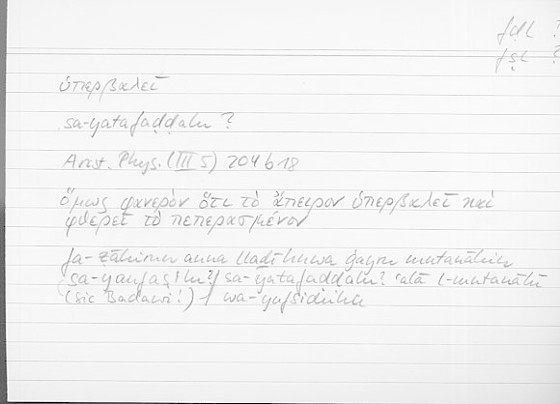 fḍl ?
fṣl ?
ὑπερβαλεῖ
sa-yatafaḍḍalu ?
Arist. Phys. (III 5) 204 b 18
ὅμως φανερὸν ὅτι τὸ ἄπειρον ὑπερβαλεῖ καὶ
φθερεῖ τὸ πεπερασμένον
fa-ẓāhirun anna lladī huwa ġayru mutanāhin
(sa-yanfaṣilu?/ sa-yatafaḍḍalu? ʿalā l-mutanāhī
(sic Badawi!) / wa-yufsiduhu